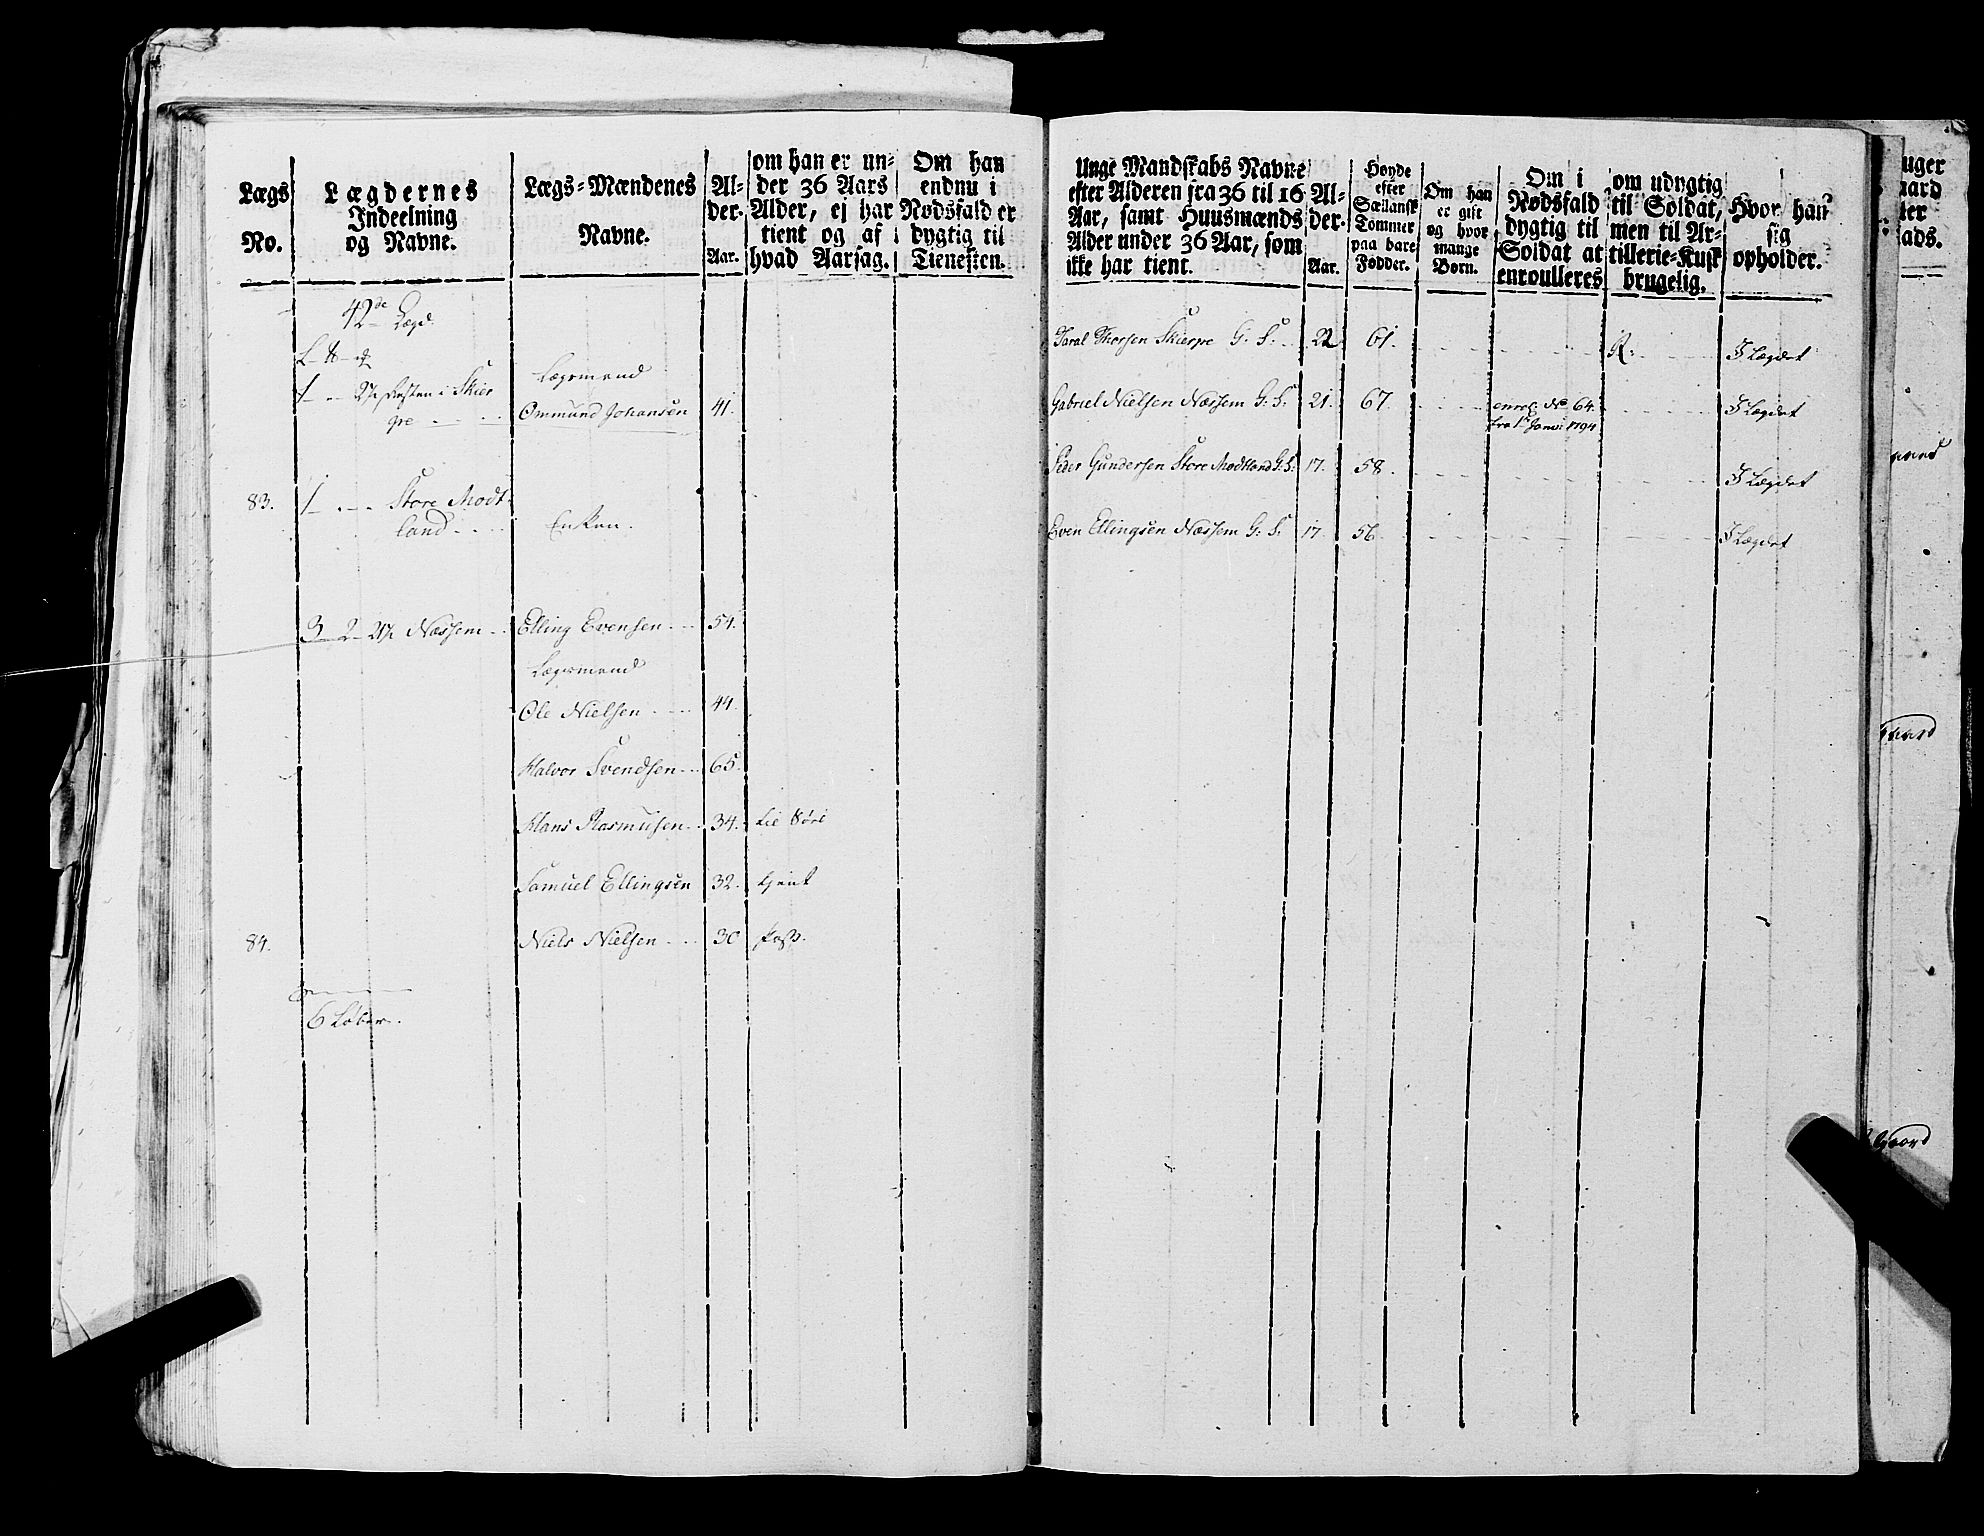 Lægs
No.
Lægdernes
Indeelning
og Navne.
Lægs-Mændenes
Navne.
Al-
der.
Aar.
om han er un-
der 36 Aars
Alder, ej har
tient og af
hvad Aarsag.
Om han
endnu i
Nødsfald er
dygtig til
Tienesten.
42de Lægd.
Lægsmand
gre
Ommund Johansen 41.
83. 1 Store Modt
land Enken.
3 2 Næssem Elling Evensen 54.
Lægsmand
Ole Nielsen 44.
Halvor Svendsen 65.
Hans Rasmusen 34.
Samuel Ellingsen 32. tjent
84. Niels Nielsen 30
6 Løber.
Unge Mandskabs Navne
efter Alderen fra 36 til 16
Aar, samt Huusmænds
Alder under 36 Aar, som
ikke har tient.
Al-
der.
Aar.
Høyde
efter
Sællansk
Tommer
paa bare
Fødder.
Om han
er gift
og hvor
mange
Børn.
Om i
Nødsfald
dygtig til
Soldat at
enroulleres
om udygtig
til Soldat,
men til Ar-
tillerie-Kusk
brugelig.
Hvor han
sig
opholder.
Thorsen Skierpe G. S. 22 61. R. I Lægdet
Gabriel Nielsen Næssem G. S. 21. 67. enrol. No 64. I Lægdet
fra 1 Janvi 1794
Peder Gundersen Store Modtland G. S. 17. 58. I Lægdet
Even Ellingsen Næssem G. S. 17. 56. I Lægdet